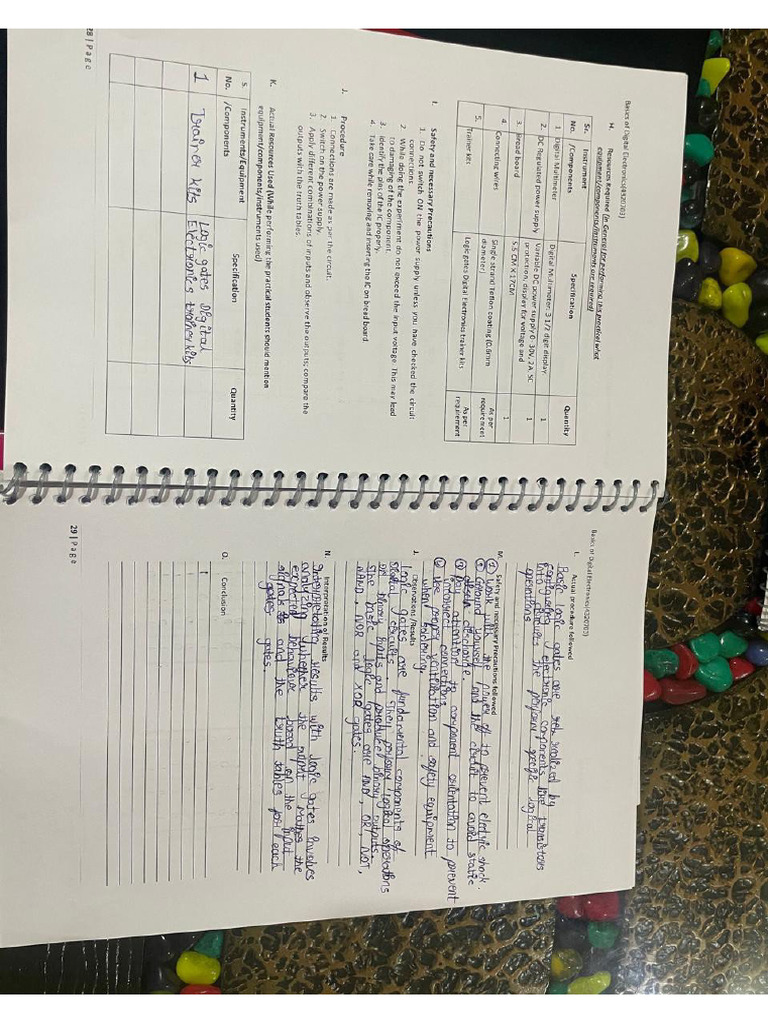 Basics of Digital Electronics(4320703)
H. Resources Required (in General for performing this practical what
equipment/components/instruments are required)
Sr. No. Instrument /Components Specification Quantity
1 Digital Multimeter Digital Multimeter: 3 1/2 digit display. 1
2. DC Regulated power supply Variable DC power supply 0- 30V, 2 A. SC
protection, display for voltage and 1
3. Bread board 5.5 CM X 17CM 1
4. Connecting wires Single strand Teflon coating (0.6mm
diameter) As per requirement
5. Trainer kits Logic gates Digital Electronics trainer kits As per requirement
I. Safety and necessary Precautions
1. Do not switch ON the power supply unless you have checked the circuit
connections.
2. While doing the experiment do not exceed the input votage. This may lead
to damaging of the component.
3. Identify the pins of the IC properly.
4. Take care while removing and inserting the IC on bread board
J. Procedure
1. Connections are made as per the circuit.
2. Switch on the power supply.
3. Apply different combinations of inputs and observe the outputs; compare the
outputs with the truth tables.
K. Actual Resources Used (While performing the practical students should mention
equipment/components/instruments used)
S. No. Instruments/Equipment /Components Specification Quantity
1 Trainer kits Logic gates Digital
Electronics trainer kits
28 | Page
Basics of Digital Electronics (4320703)
L. Actual procedure followed
Basic logic gates are
configuring electronic components like transistors
into circuits the perform specific logical
operations
M. Safety and necessary Precautions followed
① Work with the power off to prevent electric shock.
② Ground yourself and the circuit to avoid static
discharge.
③ Pay attention to component orientation to prevent
incorrect connections
④ Use proper ventilation and safety equipment
when soldering.
J. Observations /Results
Logic gates are fundamental components of
circuits. They perform logical operations
on binary inputs and produce binary outputs.
The basic logic gates are AND, OR, NOT,
NAND, NOR and XOR gates.
N. Interpretation of Results
Interpretating results with logic gates involves
analyzing whether the output matches the
expected behaviour based on the input
signals and the truth tables for each
gates gates.
O. Conclusion
29 | Page